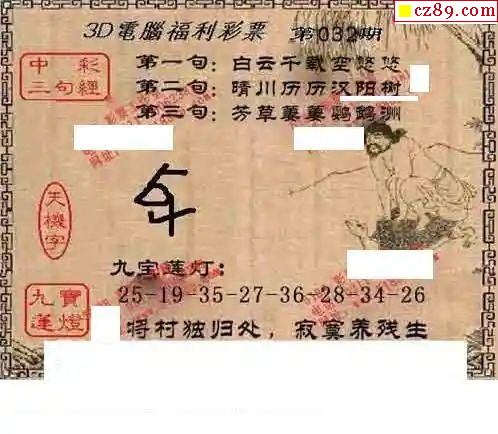 cz89.com
3D電腦福利彩票 第032期
中彩
三句經
第一句：白云千载空悠悠
第二句：晴川历历汉阳树
第三句：芳草萋萋鹦鹉洲
天機字
九宝莲灯：
九寶蓮燈
25-19-35-27-36-28-34-26
将村独归处，寂寞养残生